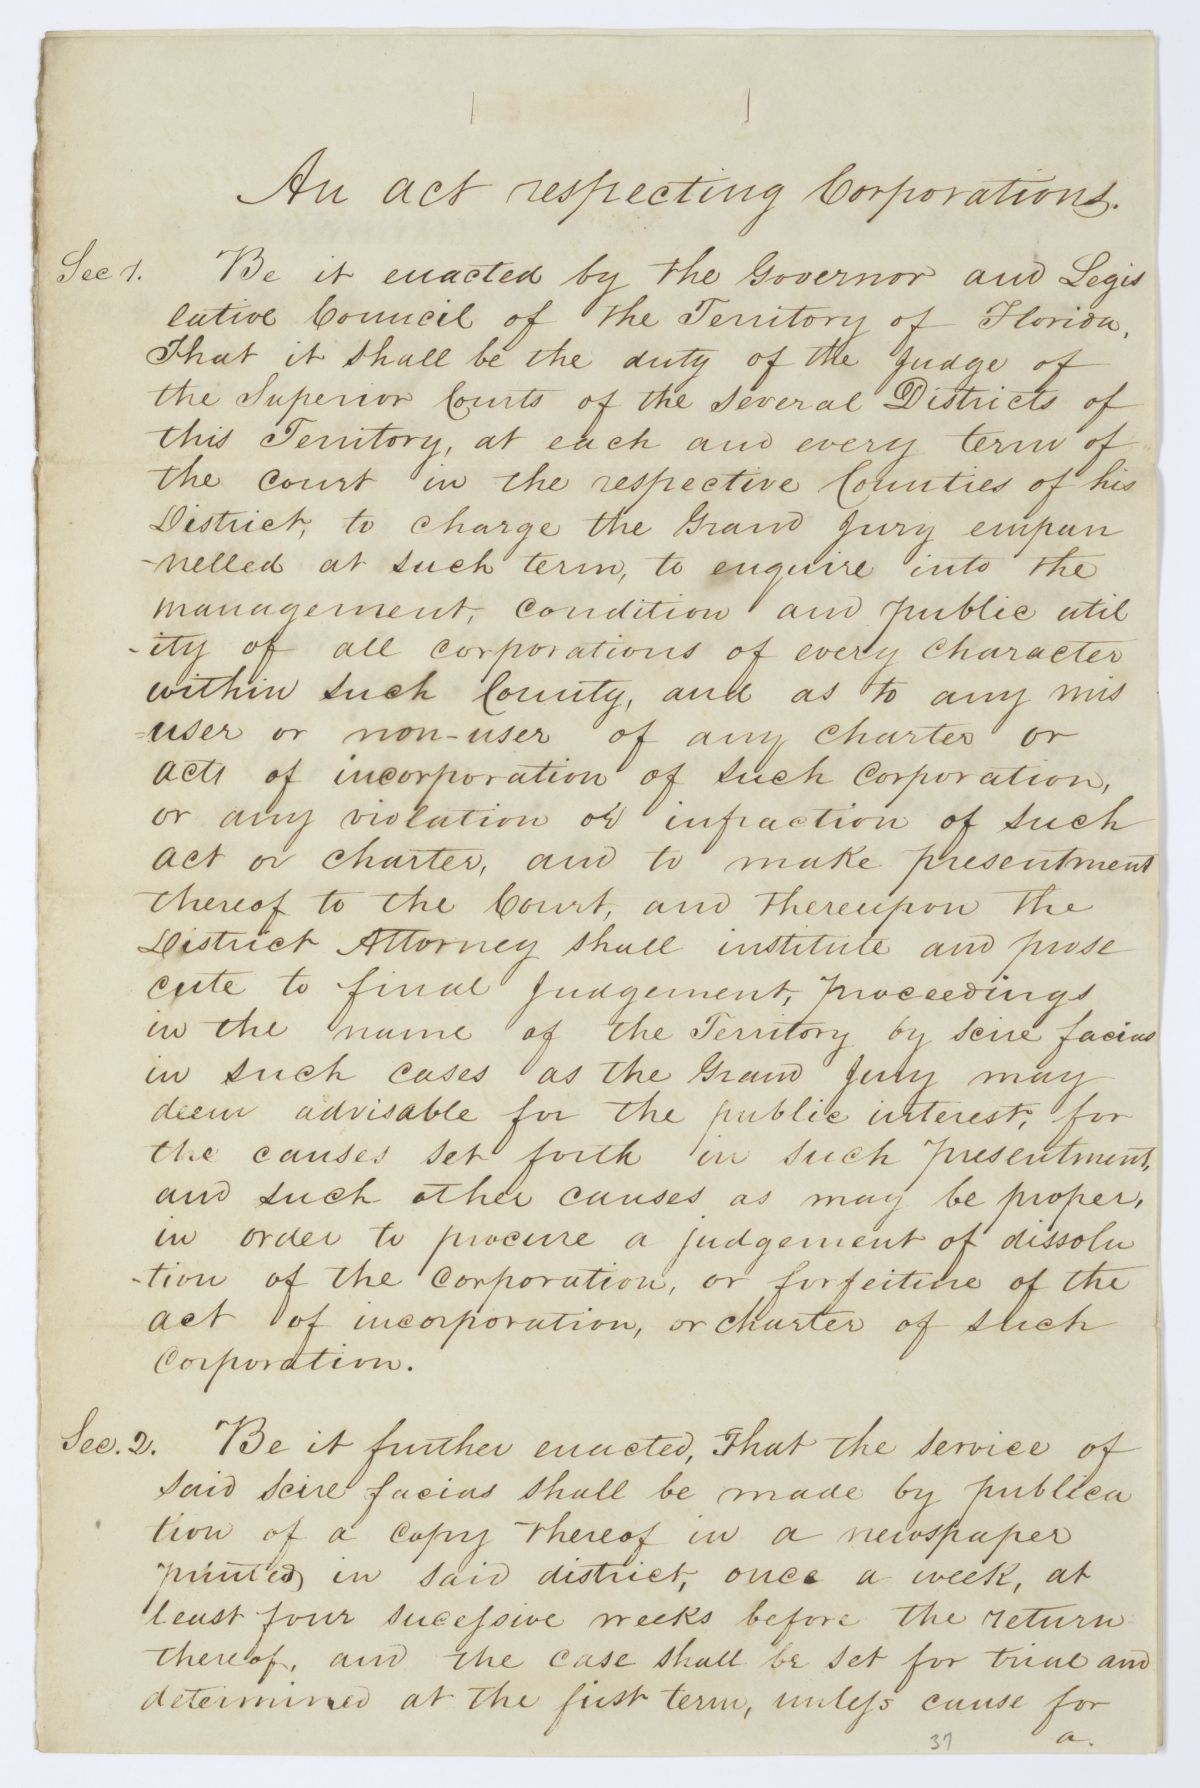 An act respecting Corporations.
Sec 1. Be it enacted by the Governor and Legis
lative Council of the Territory of Florida,
That it shall be the duty of the Judge of
the Superior Courts of the several Districts of
this Territory, at each and every term of
the court in the respective Counties of his
District, to charge the Grand Jury empan
-nelled at such term, to enquire into the
management, condition and public util
-ity of all corporations of every character
within such County, and as to any mis
=user or non-user of any charter or
acts of incorporation of such corporation,
or any violation or infraction of such
act or charter, and to make presentment
thereof to the Court, and thereupon the
District Attorney shall institute and prose
cute to final Judgement, proceedings
in the name of the Territory by scire facias
in such cases as the Grand Jury may
deem advisable for the public interest, for
the causes set forth in such presentment,
and such other causes as may be proper,
in order to procure a judgement of dissolu
-tion of the Corporation, or forfeiture of the
act of incorporation, or charter of such
Corporation.
Sec. 2. Be it further enacted, That the service of
said scire facias shall be made by publica
tion of a copy thereof in a newspaper
printed in said district, once a week, at
least four sucessive weeks before the return
thereof, and the case shall be set for trial and
determined at the first term, unless cause for
a.
37